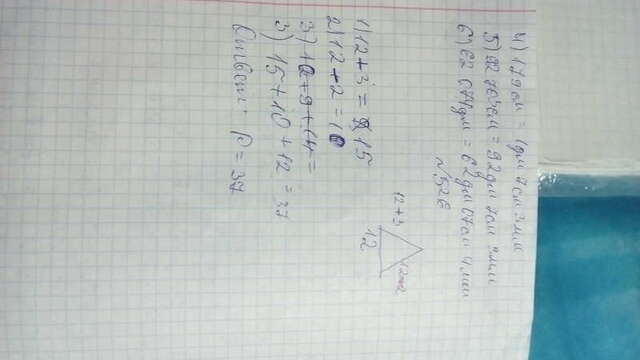 4) 179см = 1дм 7см 3мм
5) = 92дм 7см 9мм
6) 62 674дм = 62дм 67см 4мм
№ 526
12+3
12
12-2
1) 12+3 = 15
2) 12-2 = 10
3) 12+9+14 =
3) 15+10+12 = 37
Ответ: P = 37